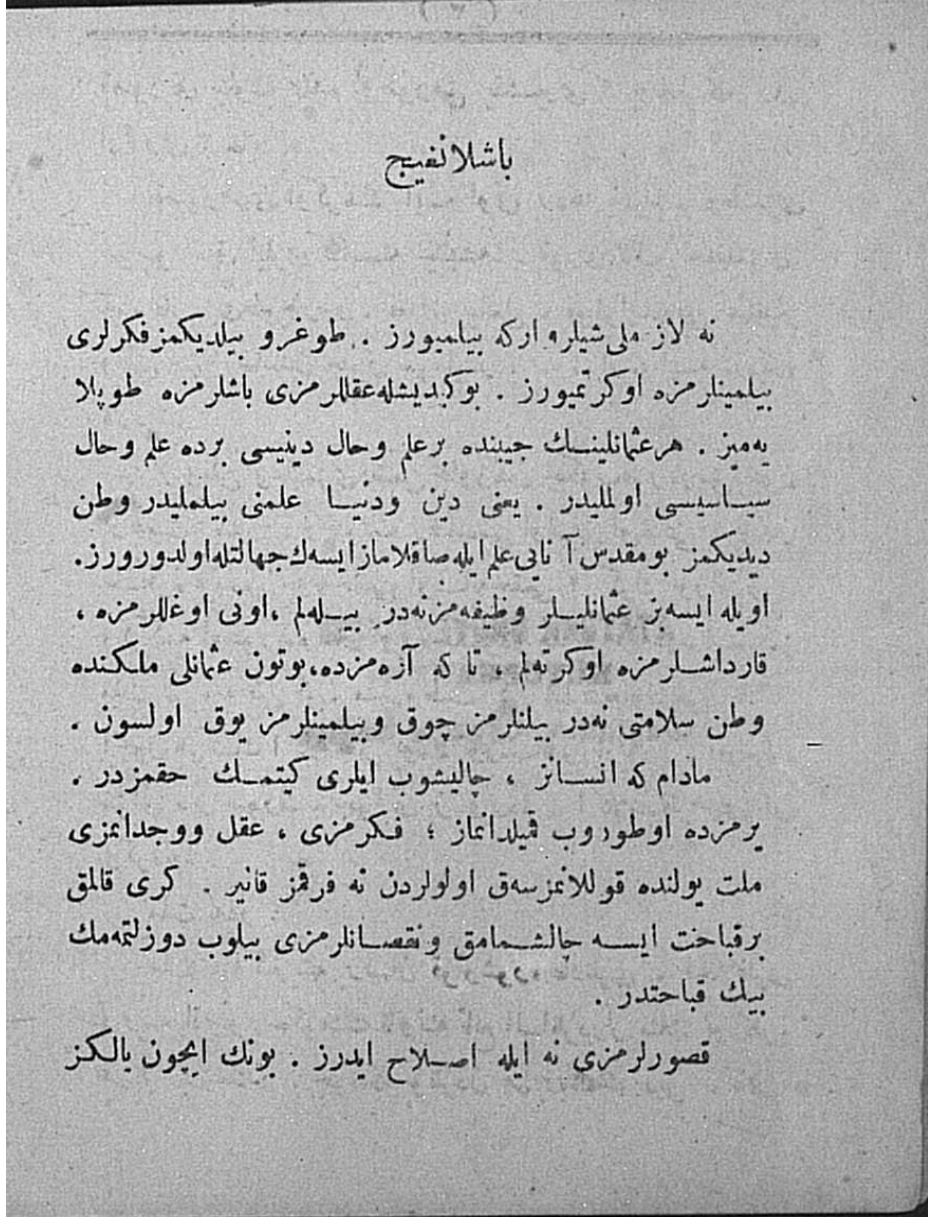 باشلانغیج
نه لازملی شیلر وارکه بیلمیورز . طوغرو بیلدیکمز فکرلری
بیلمینلرمزه اوکرتمیورز . بوکیدیشله عقللرمزی باشلرمزه طوپلا
یه‌میز . هرعثمانلینك جیبنده برعلم وحال دینیسی برده علم وحال
سیاسیسی اولملیدر . یعنی دین ودنیا علمنی بیلملیدر وطن
دیدیکمز بومقدس آنایی علم ایله صاقلاماز ایسه‌ك جهالتله اولدورورز.
اویله ایسه‌بز عثمانلیلر وظیفه‌مز نه‌در بیله‌لم ، اونی اوغللرمزه ،
قارداشلرمزه اوکرته‌لم ، تا که آره‌مزده، بوتون عثمانلی ملکنده
وطن سلامتی نه‌در بیلنلرمز چوق وبیلمینلرمز یوق اولسون .
مادام که انسانز ، چالیشوب ایلری کیتمك حقمزدر .
یرمزده اوطوروب قمیلدانماز ؛ فکرمزی ، عقل ووجدانمزی
ملت یولنده قوللانمزسه‌ق اولولردن نه فرقمز قالیر . کری قالمق
برقباحت ایسه چالشمامق ونقصانلرمزی بیلوب دوزلتمه‌مك
بیك قباحتدر .
قصورلرمزی نه ایله اصلاح ایدرز . بونك ایچون یالکز